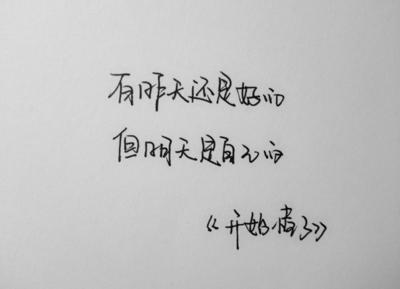 有昨天还是好的
但明天是自己的
《开始懂了》